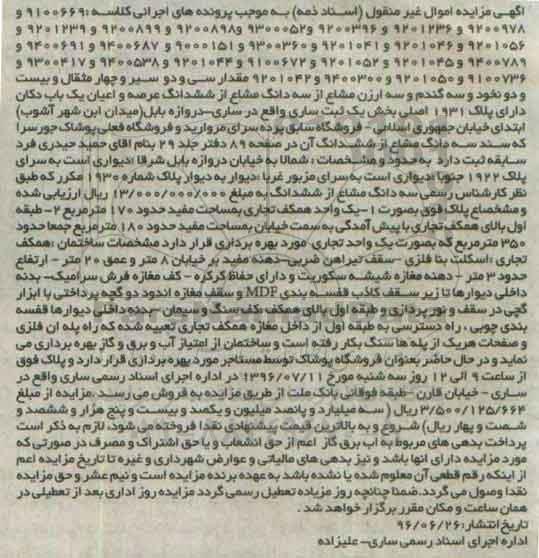 آگهی مزایده اموال غیر منقول (اسناد ذمه) به موجب پرونده های اجرائی کلاسه: ۹۱۰۰۶۶۹ و
۹۲۰۰۹۷۸ و ۹۲۰۱۲۳۶ و ۹۲۰۰۳۹۶ و ۹۳۰۰۰۵۲ و ۹۲۰۰۸۹۸ و ۹۲۰۰۸۹۹ و ۹۲۰۱۲۳۹ و
۹۲۰۱۰۵۶ و ۹۲۰۱۰۴۶ و ۹۲۰۱۰۴۱ و ۹۳۰۰۳۶۰ و ۹۰۰۰۱۵۱ و ۹۴۰۰۶۸۷ و ۹۴۰۰۶۹۱ و
۹۴۰۰۷۸۹ و ۹۲۰۱۰۴۵ و ۹۲۰۱۰۵۲ و ۹۱۰۰۶۷۲ و ۹۲۰۱۰۴۴ و ۹۴۰۰۵۳۸ و ۹۳۰۰۴۱۷ و
۹۱۰۰۷۳۶ و ۹۲۰۱۰۵۰ و ۹۴۰۰۳۰۰ و ۹۲۰۱۰۴۲ مقدار سی و دو سیر و چهار مثقال و بیست
و دو نخود و سه گندم و سه ارزن مشاع از سه دانگ مشاع از ششدانگ عرصه و اعیان یک باب دکان
دارای پلاک ۱۹۳۱ اصلی بخش یک ثبت ساری واقع در ساری-دروازه بابل(میدان ابن شهر آشوب)
ابتدای خیابان جمهوری اسلامی - فروشگاه سابق پرده سرای مروارید و فروشگاه فعلی پوشاک جورسرا
که سند سه دانگ مشاع از ششدانگ آن در صفحه ۸۹ دفتر جلد ۲۹ بنام آقای حمید حیدری فرد
سابقه ثبت دارد به حدود و مشخصات : شمالا به خیابان دروازه بابل شرقا :دیواری است به سرای
پلاک ۱۹۲۲ جنوبا :دیواری است به سرای مزبور غربا :دیوار به دیوار پلاک شماره ۱۹۳۰ مکرر که طبق
نظر کارشناس رسمی سه دانگ مشاع از ششدانگ به مبلغ ۱۳/۰۰۰/۰۰۰/۰۰۰ ریال ارزیابی شده
و مشخصاع پلاک فوق بصورت ۱-یک واحد همکف تجاری بمساحت مفید حدود ۱۷۰ مترمربع ۲-طبقه
اول بالای همکف تجاری با پیش آمدگی به سمت خیابان بمساحت مفید حدود ۱۸۰ مترمربع جمعا حدود
۳۵۰ مترمربع که بصورت یک واحد تجاری مورد بهره برداری قرار دارد مشخصات ساختمان :همکف
تجاری :اسکلت بنا فلزی -سقف تیرآهن ضربی-دهنه مفید بر خیابان ۸ متر و عمق ۲۰ متر - ارتفاع
حدود ۳ متر - دهنه مغازه شیشه سکوریت و دارای حفاظ کرکره - کف مغازه فرش سرامیک- بدنه
داخلی دیوارها تا زیر سقف کاذب قفسه بندی MDF و سقف مغازه اندود دو گچه پرداختی با ابزار
گچی در سقف و نورپردازی و طبقه اول بالای همکف :کف سنگ و سیمان -بدنه داخلی دیوارها قفسه
بندی چوبی ، راه دسترسی به طبقه اول از داخل مغازه همکف تجاری تعبیه شده که راه پله ان فلزی
و صفحات هریک از پله ها سنگ بکار رفته است و ساختمان از امتیاز آب و برق و گاز بهره برداری می
نماید و در حال حاضر بعنوان فروشگاه پوشاک توسط مستاجر مورد بهره برداری قرار دارد و پلاک فوق
از ساعت ۹ الی ۱۲ روز سه شنبه مورخ ۱۳۹۶/۰۷/۱۱ در اداره اجرای اسناد رسمی ساری واقع در
ساری - خیابان قارن -طبقه فوقانی بانک ملت از طریق مزایده به فروش می رسد .مزایده از مبلغ
۳/۵۰۰/۱۲۵/۶۶۴ ریال ( سه میلیارد و پانصد میلیون و یکصد و بیست و پنج هزار و ششصد و
شصت و چهار ریال) شروع و به بالاترین قیمت پیشنهادی نقدا فروخته می شود، لازم به ذکر است
پرداخت بدهی های مربوط به آب برق گاز اعم از حق انشعاب و یا حق اشتراک و مصرف در صورتی که
مورد مزایده دارای انها باشد و نیز بدهی های مالیاتی و عوارض شهرداری و غیره تا تاریخ مزایده اعم
از اینکه رقم قطعی آن معلوم شده یا نشده باشد به عهده برنده مزایده است و نیم عشر و حق مزایده
نقدا وصول می گردد.ضمنا چنانچه روز مزیاده تعطیل رسمی گردد مزایده روز اداری بعد از تعطیلی در
همان ساعت و مکان مقرر برگزار خواهد شد .
تاریخ انتشار:۹۶/۰۶/۲۶
اداره اجرای اسناد رسمی ساری- علیزاده